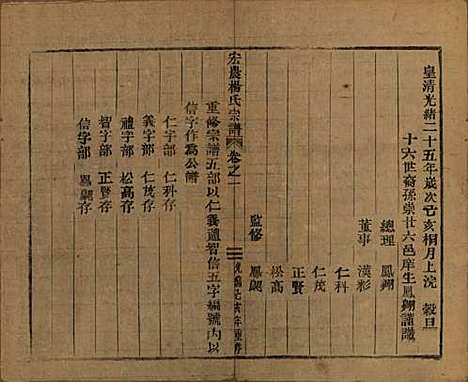 皇清光緒二十五年歲次己亥桐月上浣 穀旦
十六世裔孫崇廿六邑庠生鳳翽謹識
總理 鳳翽
董事 漢彩
仁科
仁茂
正賢
松高
監修 鳳翽
宏農楊氏宗譜 卷之一
重修宗譜五部以仁義禮智信五字編號內以
信字作爲公譜
仁字部 仁科存
義字部 仁茂存
禮字部 松高存
智字部 正賢存
信字部 鳳翽存